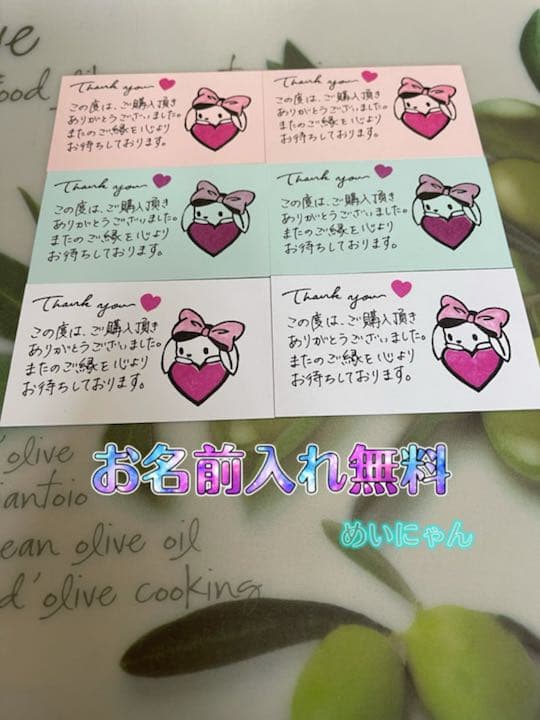 Thank you
この度は、ご購入頂き
ありがとうございました。
またのご縁を心より
お待ちしております。
Thank you
この度は、ご購入頂き
ありがとうございました。
またのご縁を心より
お待ちしております。
Thank you
この度は、ご購入頂き
ありがとうございました。
またのご縁を心より
お待ちしております。
Thank you
この度は、ご購入頂き
ありがとうございました。
またのご縁を心より
お待ちしております。
Thank you
この度は、ご購入頂き
ありがとうございました。
またのご縁を心より
お待ちしております。
Thank you
この度は、ご購入頂き
ありがとうございました。
またのご縁を心より
お待ちしております。
お名前入れ無料
めいにゃん
olive
antoio
ean olive oil
d'olive cooking